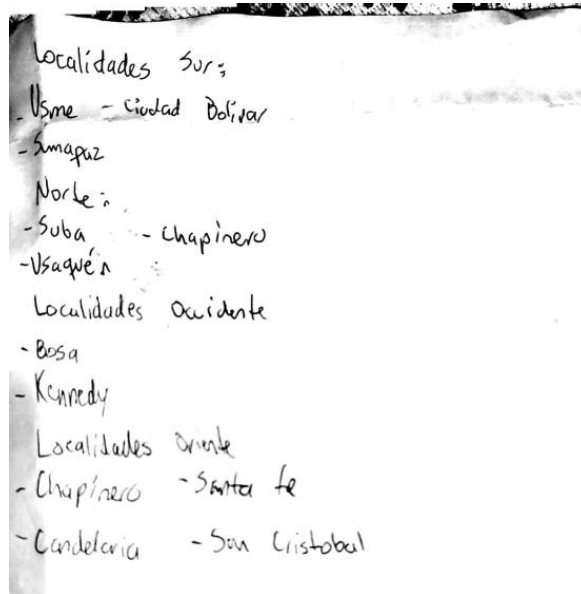 Localidades Sur:
- Usme - Ciudad Bolívar
- Sumapaz
Norte:
- Suba - Chapinero
- Usaquén
Localidades Occidente
- Bosa
- Kennedy
Localidades Oriente
- Chapínero - Santa fe
- Candelaria - San Cristobal